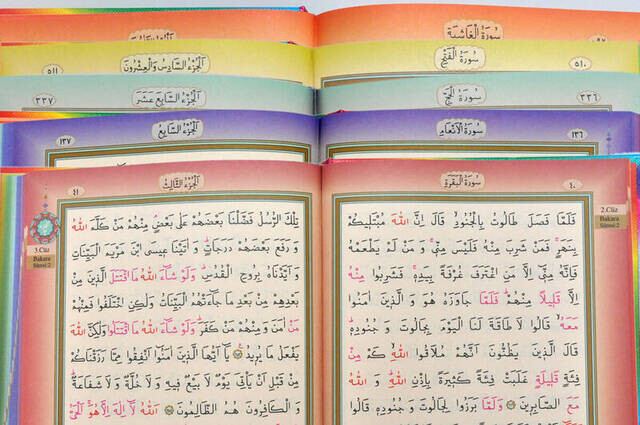 سُورَةُ الْغَاشِيَةِ
سُورَةُ الْفَتْحِ
٥١٠
اَلْجُزْءُ السَّادِسُ وَالْعِشْرُونَ
٥١١
سُورَةُ الْحَجِّ
٣٣٦
اَلْجُزْءُ السَّابِعَ عَشَرَ
٣٣٧
سُورَةُ الْاَنْعَامِ
١٣٦
اَلْجُزْءُ السَّابِعُ
١٣٧
سُورَةُ الْبَقَرَةِ
٤٠
2.Cüz
Bakara
Sûresi:2
فَلَمَّا فَصَلَ طَالُوتُ بِالْجُنُودِ قَالَ اِنَّ اللّٰهَ مُبْتَلِيكُمْ
بِنَهَرٍ فَمَنْ شَرِبَ مِنْهُ فَلَيْسَ مِنِّي وَ مَنْ لَمْ يَطْعَمْهُ
فَاِنَّهُ مِنِّي اِلَّا مَنِ اغْتَرَفَ غُرْفَةً بِيَدِهِ فَشَرِبُوا مِنْهُ
اِلَّا قَلِيلًا مِنْهُمْ فَلَمَّا جَاوَزَهُ هُوَ وَ الَّذِينَ اٰمَنُوا
مَعَهُ قَالُوا لَا طَاقَةَ لَنَا الْيَوْمَ بِجَالُوتَ وَ جُنُودِهِ
قَالَ الَّذِينَ يَظُنُّونَ اَنَّهُمْ مُلَاقُوا اللّٰهِ كَمْ مِنْ
فِئَةٍ قَلِيلَةٍ غَلَبَتْ فِئَةً كَثِيرَةً بِاِذْنِ اللّٰهِ وَ اللّٰهُ
مَعَ الصَّابِرِينَ وَلَمَّا بَرَزُوا لِجَالُوتَ وَ جُنُودِهِ قَالُوا
اَلْجُزْءُ الثَّالِثُ
٤١
3.Cüz
Bakara
Sûresi:2
تِلْكَ الرُّسُلُ فَضَّلْنَا بَعْضَهُمْ عَلٰى بَعْضٍ مِنْهُمْ مَنْ كَلَّمَ اللّٰهُ
وَ رَفَعَ بَعْضَهُمْ دَرَجَاتٍ وَ اٰتَيْنَا عِيسَى ابْنَ مَرْيَمَ الْبَيِّنَاتِ
وَ اَيَّدْنَاهُ بِرُوحِ الْقُدُسِ وَلَوْ شَاءَ اللّٰهُ مَا اقْتَتَلَ الَّذِينَ مِنْ
بَعْدِهِمْ مِنْ بَعْدِ مَا جَاءَتْهُمُ الْبَيِّنَاتُ وَلٰكِنِ اخْتَلَفُوا فَمِنْهُمْ
مَنْ اٰمَنَ وَ مِنْهُمْ مَنْ كَفَرَ وَلَوْ شَاءَ اللّٰهُ مَا اقْتَتَلُوا وَلٰكِنَّ اللّٰهَ
يَفْعَلُ مَا يُرِيدُ يَا اَيُّهَا الَّذِينَ اٰمَنُوا اَنْفِقُوا مِمَّا رَزَقْنَاكُمْ
مِنْ قَبْلِ اَنْ يَأْتِيَ يَوْمٌ لَا بَيْعٌ فِيهِ وَ لَا خُلَّةٌ وَ لَا شَفَاعَةٌ
وَ الْكَافِرُونَ هُمُ الظَّالِمُونَ اَللّٰهُ لَا اِلٰهَ اِلَّا هُوَ اَلْحَيُّ